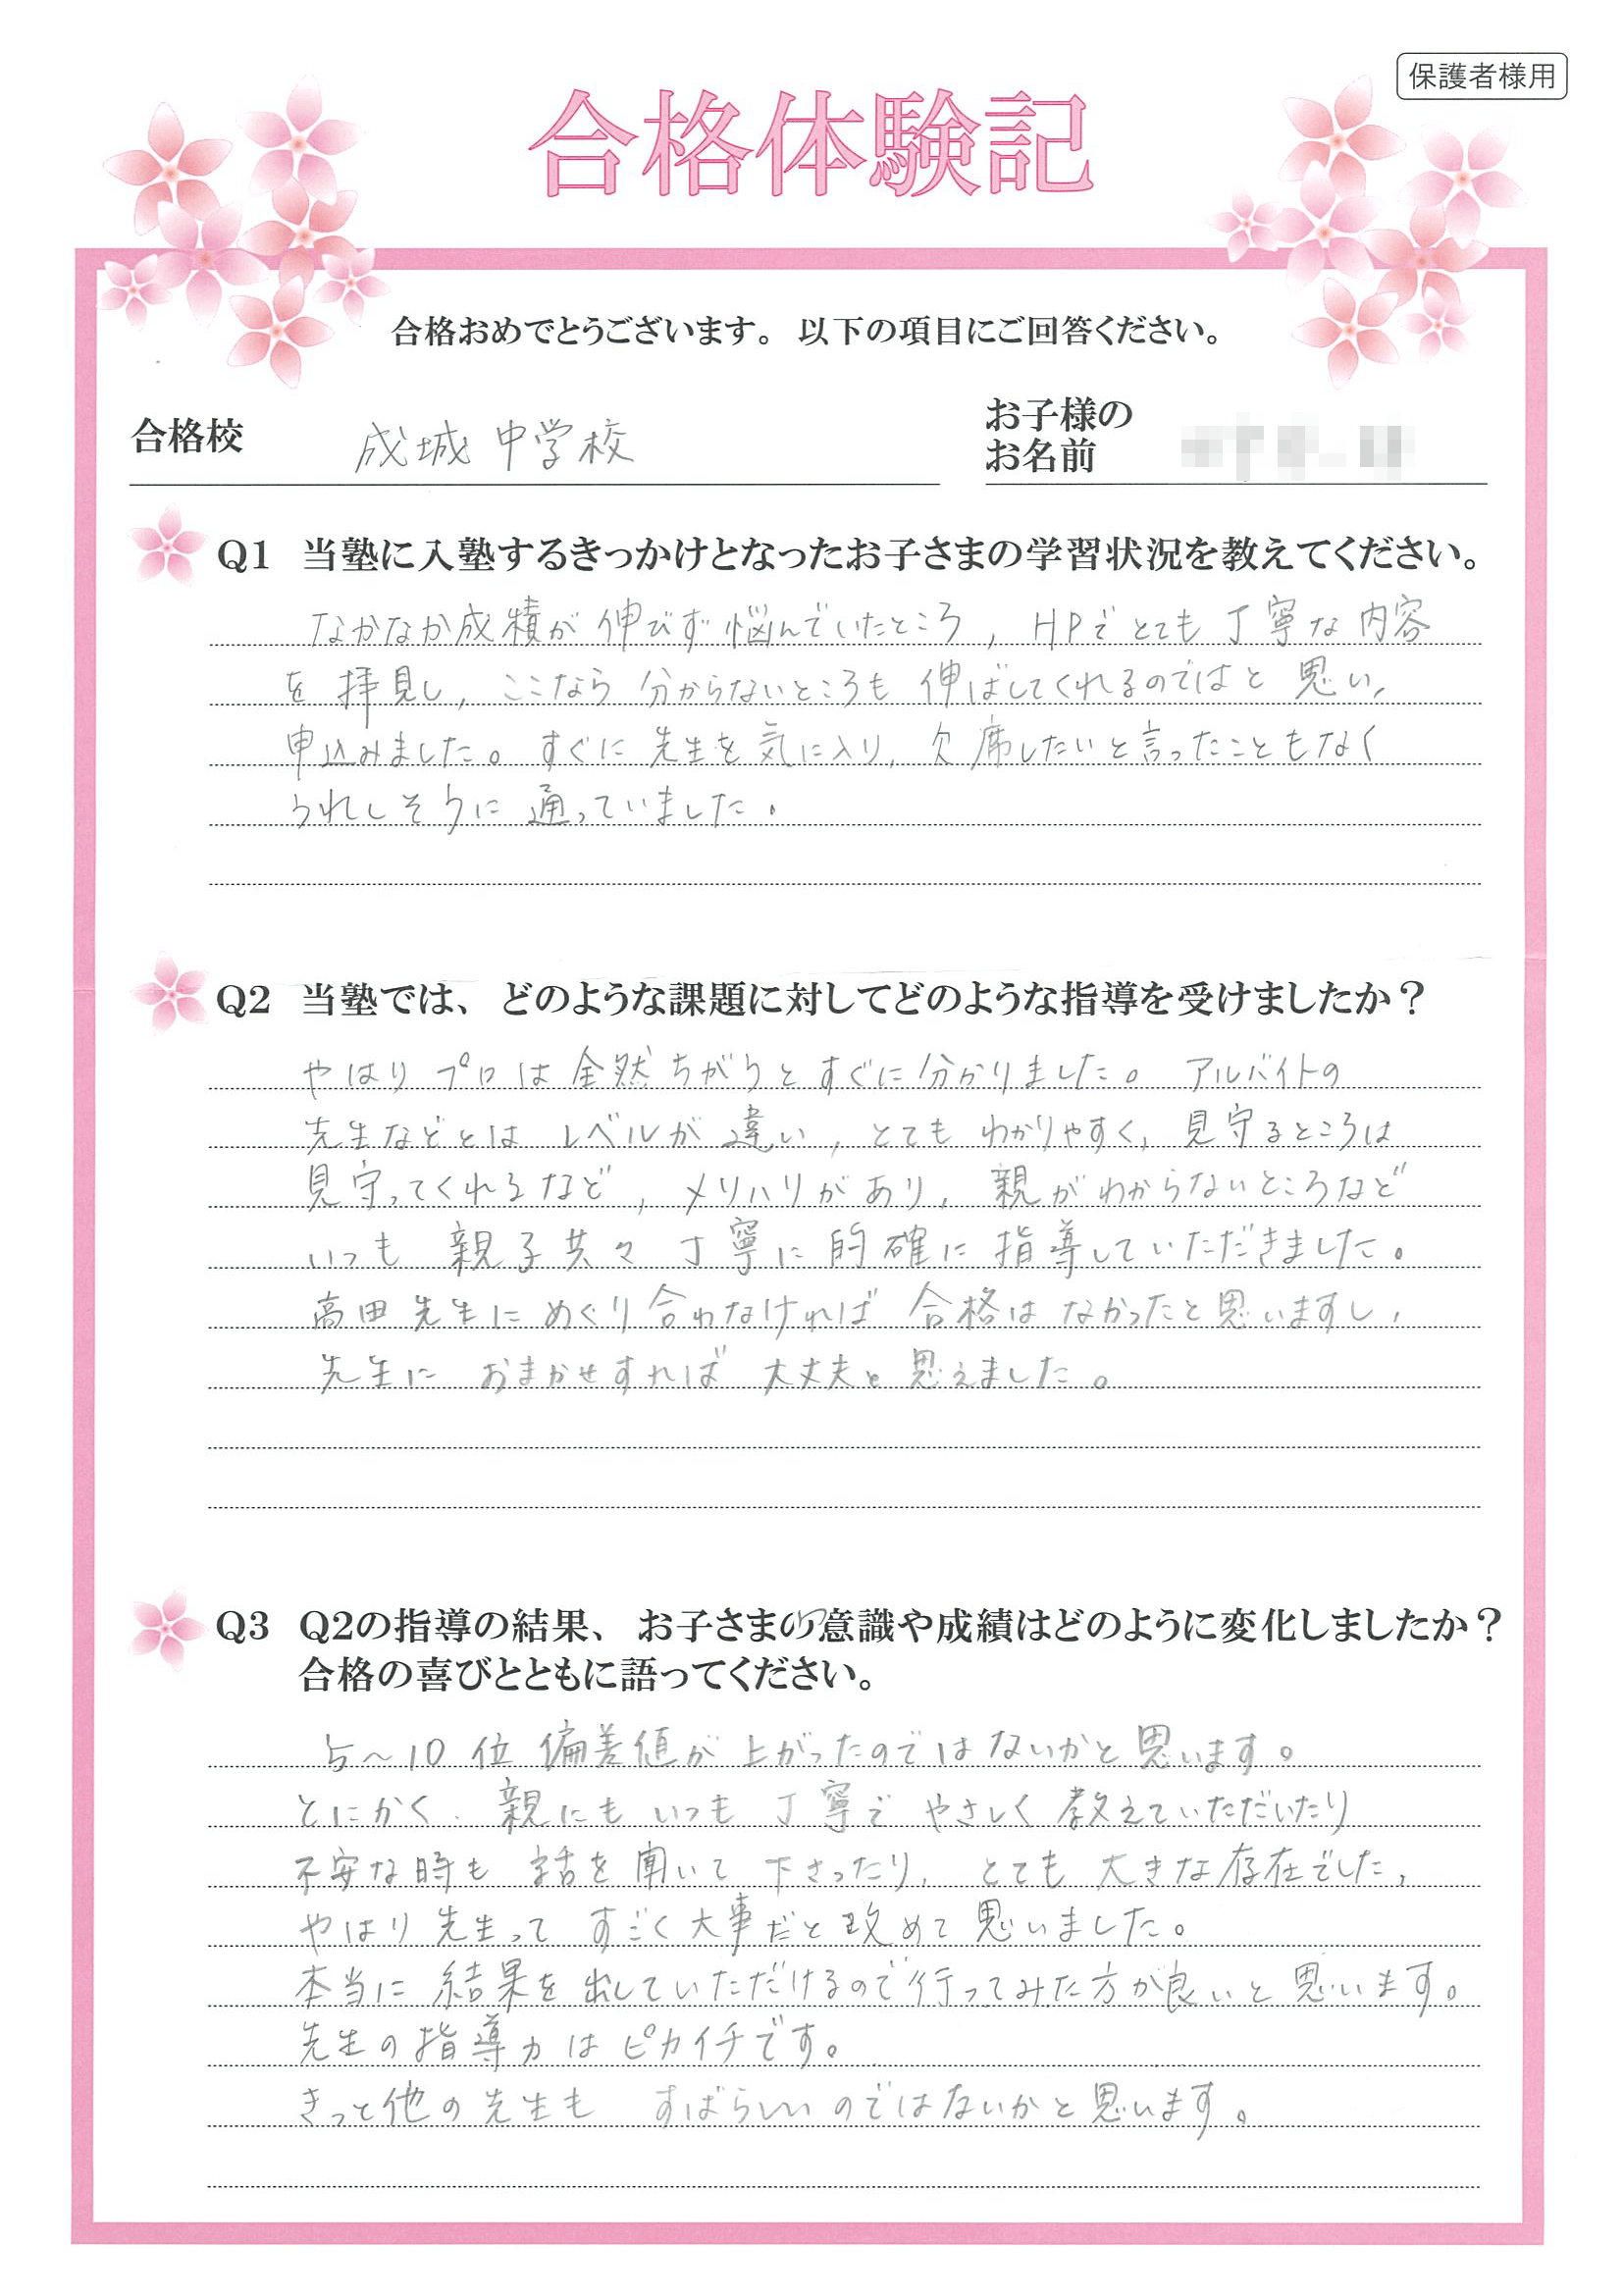 保護者様用
合格体験記
合格おめでとうございます。 以下の項目にご回答ください。
合格校 成城中学校
お子様の
お名前
Q1 当塾に入塾するきっかけとなったお子さまの学習状況を教えてください。
なかなか成積が伸びず悩んでいたところ,HPでとても丁寧な内容
を拝見し,ここなら分からないところも伸ばしてくれるのではと思い,
申込みました。すぐに先生を気に入り,欠席したいと言ったこともなく
うれしそうに通っていました。
Q2 当塾では、どのような課題に対してどのような指導を受けましたか？
やはりプロは全然ちがうとすぐに分かりました。アルバイトの
先生などとはレベルが違い,とてもわかりやすく,見守るところは
見守ってくれるなど,メリハリがあり,親がわからないところなど
いつも親子共々丁寧に的確に指導していただきました。
高田先生にめぐり合わなければ合格はなかったと思いますし,
先生におまかせすれば大丈夫と思えました。
Q3 Q2の指導の結果、お子さまの意識や成績はどのように変化しましたか？
合格の喜びとともに語ってください。
5〜10位偏差値が上がったのではないかと思います。
とにかく、親にもいつも丁寧でやさしく教えていただいたり
不安な時も話を聞いて下さったり,とても大きな存在でした,
やはり先生ってすごく大事だと改めて思いました。
本当に結果を出していただけるので行ってみた方が良いと思います。
先生の指導力はピカイチです。
きっと他の先生もすばらしいのではないかと思います。